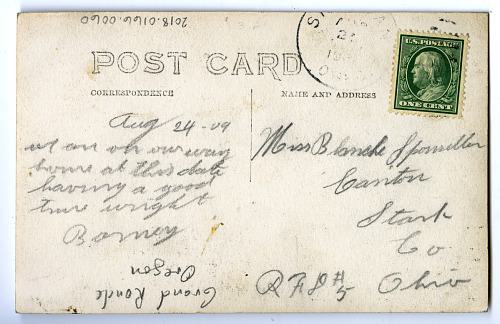 2018.0166.0060
POST CARD
CORRESPONDENCE
NAME AND ADDRESS
U.S. POSTAGE
ONE CENT
Aug 24-09
we are on our way
home at this date
having a good
time wright
Barney
Grand Ronde
Oregon
Miss Blanche Sponseller
Canton
Stark
Co
RFD #5 Ohio